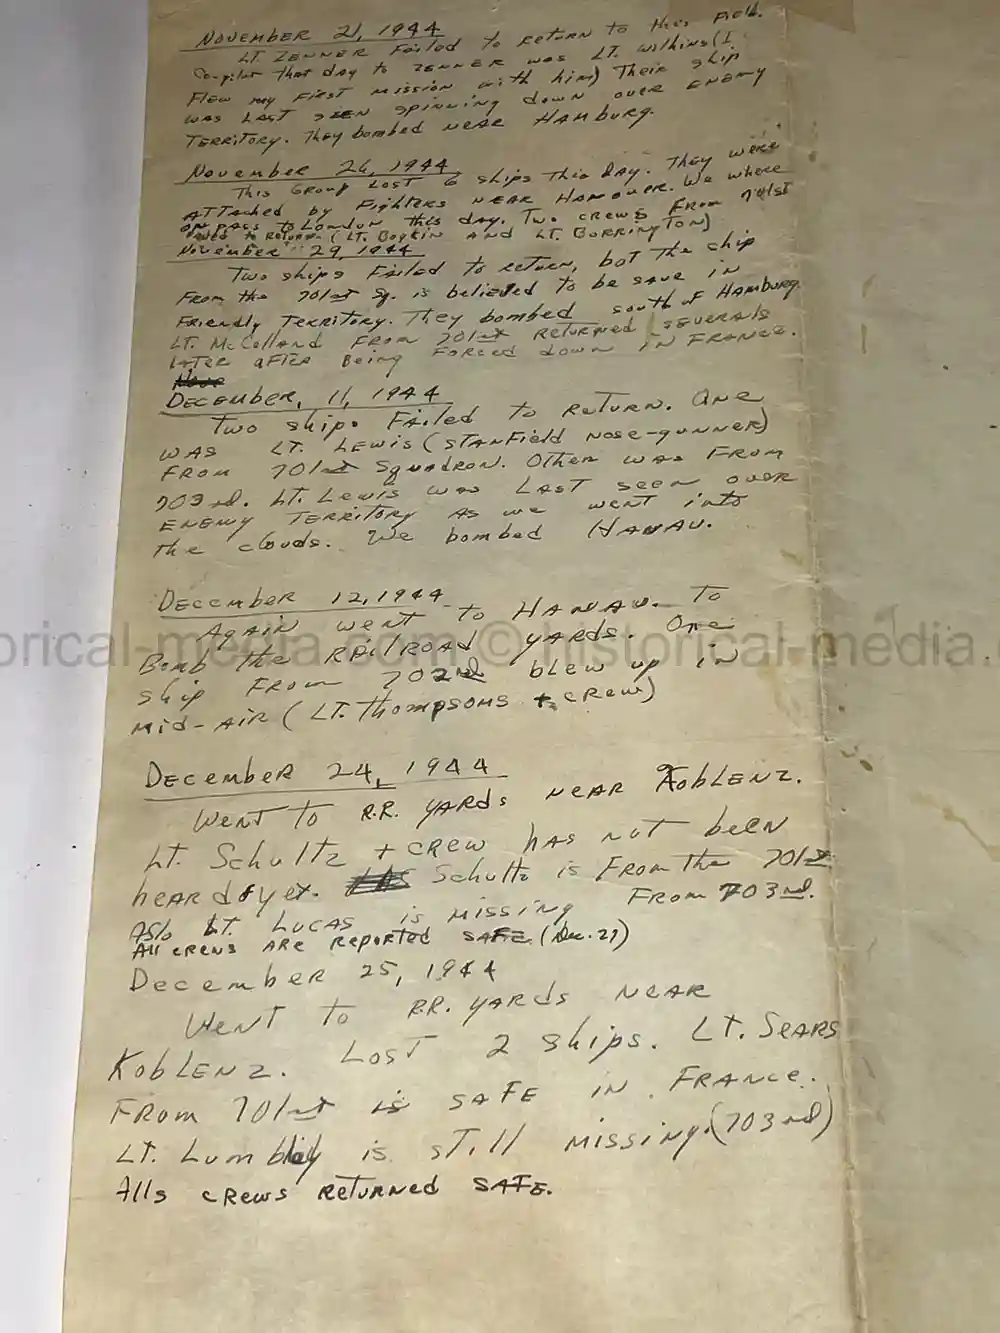 NOVEMBER 21, 1944
LT. ZENNER FAILED to RETURN to this FIELD.
Co-pilot that day to ZENNER was LT. Wilkins (I
Flew my FIRST MISSION with him) Their ship
WAS LAST SEEN SPINNING down over ENEMY
TERRITORY. They bombed NEAR HAMBURG.
November 26, 1944
This GROUP LOST 6 ships this DAY. They were
ATTACHED by FIGHTERS NEAR HANOVER. We where
ON PASS to LONDON this day. Two CREWS FROM 701st
FAILED to RETURN (LT. BOYKIN AND LT. BORRINGTON)
NOVEMBER 29, 1944
Two ships FAILED to return, but the ship
FROM the 701st Sq. is believed to be save in
FRIENDLY TERRITORY. They bombed south of HAMBURG.
LT. McCELLAND FROM 701st RETURNED SEVERALS
LATER AFTER BEING FORCED down IN FRANCE.
DECEMBER, 11, 1944
Two ships FAILED to RETURN. ONE
WAS LT. LEWIS (STANFIELD NOSE-GUNNER)
FROM 701st SQUADRON. OTHER WAS FROM
703rd. LT. LEWIS was LAST seen over
ENEMY TERRITORY AS we went into
the clouds. We bombed HANAU.
DECEMBER 12, 1944
AGAIN went to HANAU. To
Bomb the RAILROAD YARDS. ONE
ship FROM 702nd blew up in
MID-AIR (LT. THOMPSONS + CREW)
DECEMBER 24, 1944
WENT TO R.R. YARDS NEAR KOBLENZ.
LT. Schultz + CREW has NOT been
heard of yet. Schultz is FROM the 701st
Aslo LT. LUCAS is MISSING FROM 703rd.
All CREWS ARE REPORTED SAFE. (Dec. 27)
DECEMBER 25, 1944
WENT to R.R. YARDS NEAR
KOBLENZ. LOST 2 ships. LT. SEARS
FROM 701st is SAFE IN FRANCE.
LT. Lumbly is still MISSING. (703rd)
Alls CREWS RETURNED SAFE.
orical-media.com © historical-media.c